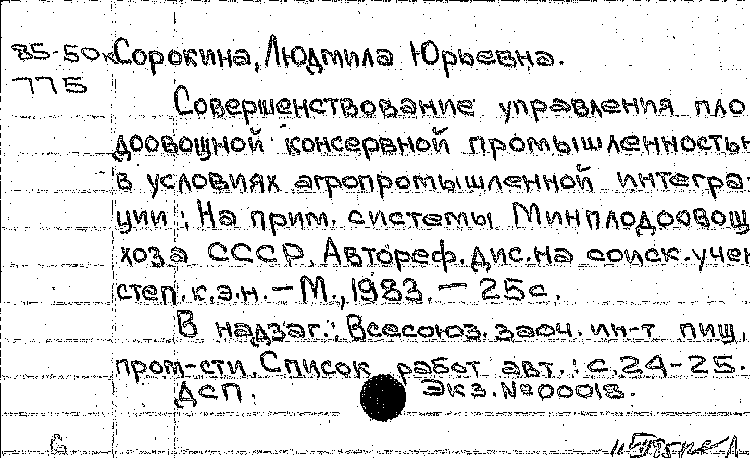 85-50к Сорокина, Людмила Юрьевна.
775
Совершенствование управления пло
доовощной консервной промышленностью
в условиях агропромышленной интегра-
ции: На прим. системы Минплодоовощ
хоза СССР. Автореф. дис. на соиск. учен
степ. к.э.н. - М., 1983. - 25с.
В надзаг.: Всесоюз. заоч. ин-т пищ.
пром-сти. Список работ авт.: с. 24-25.
ДСП. Экз. № 00018.